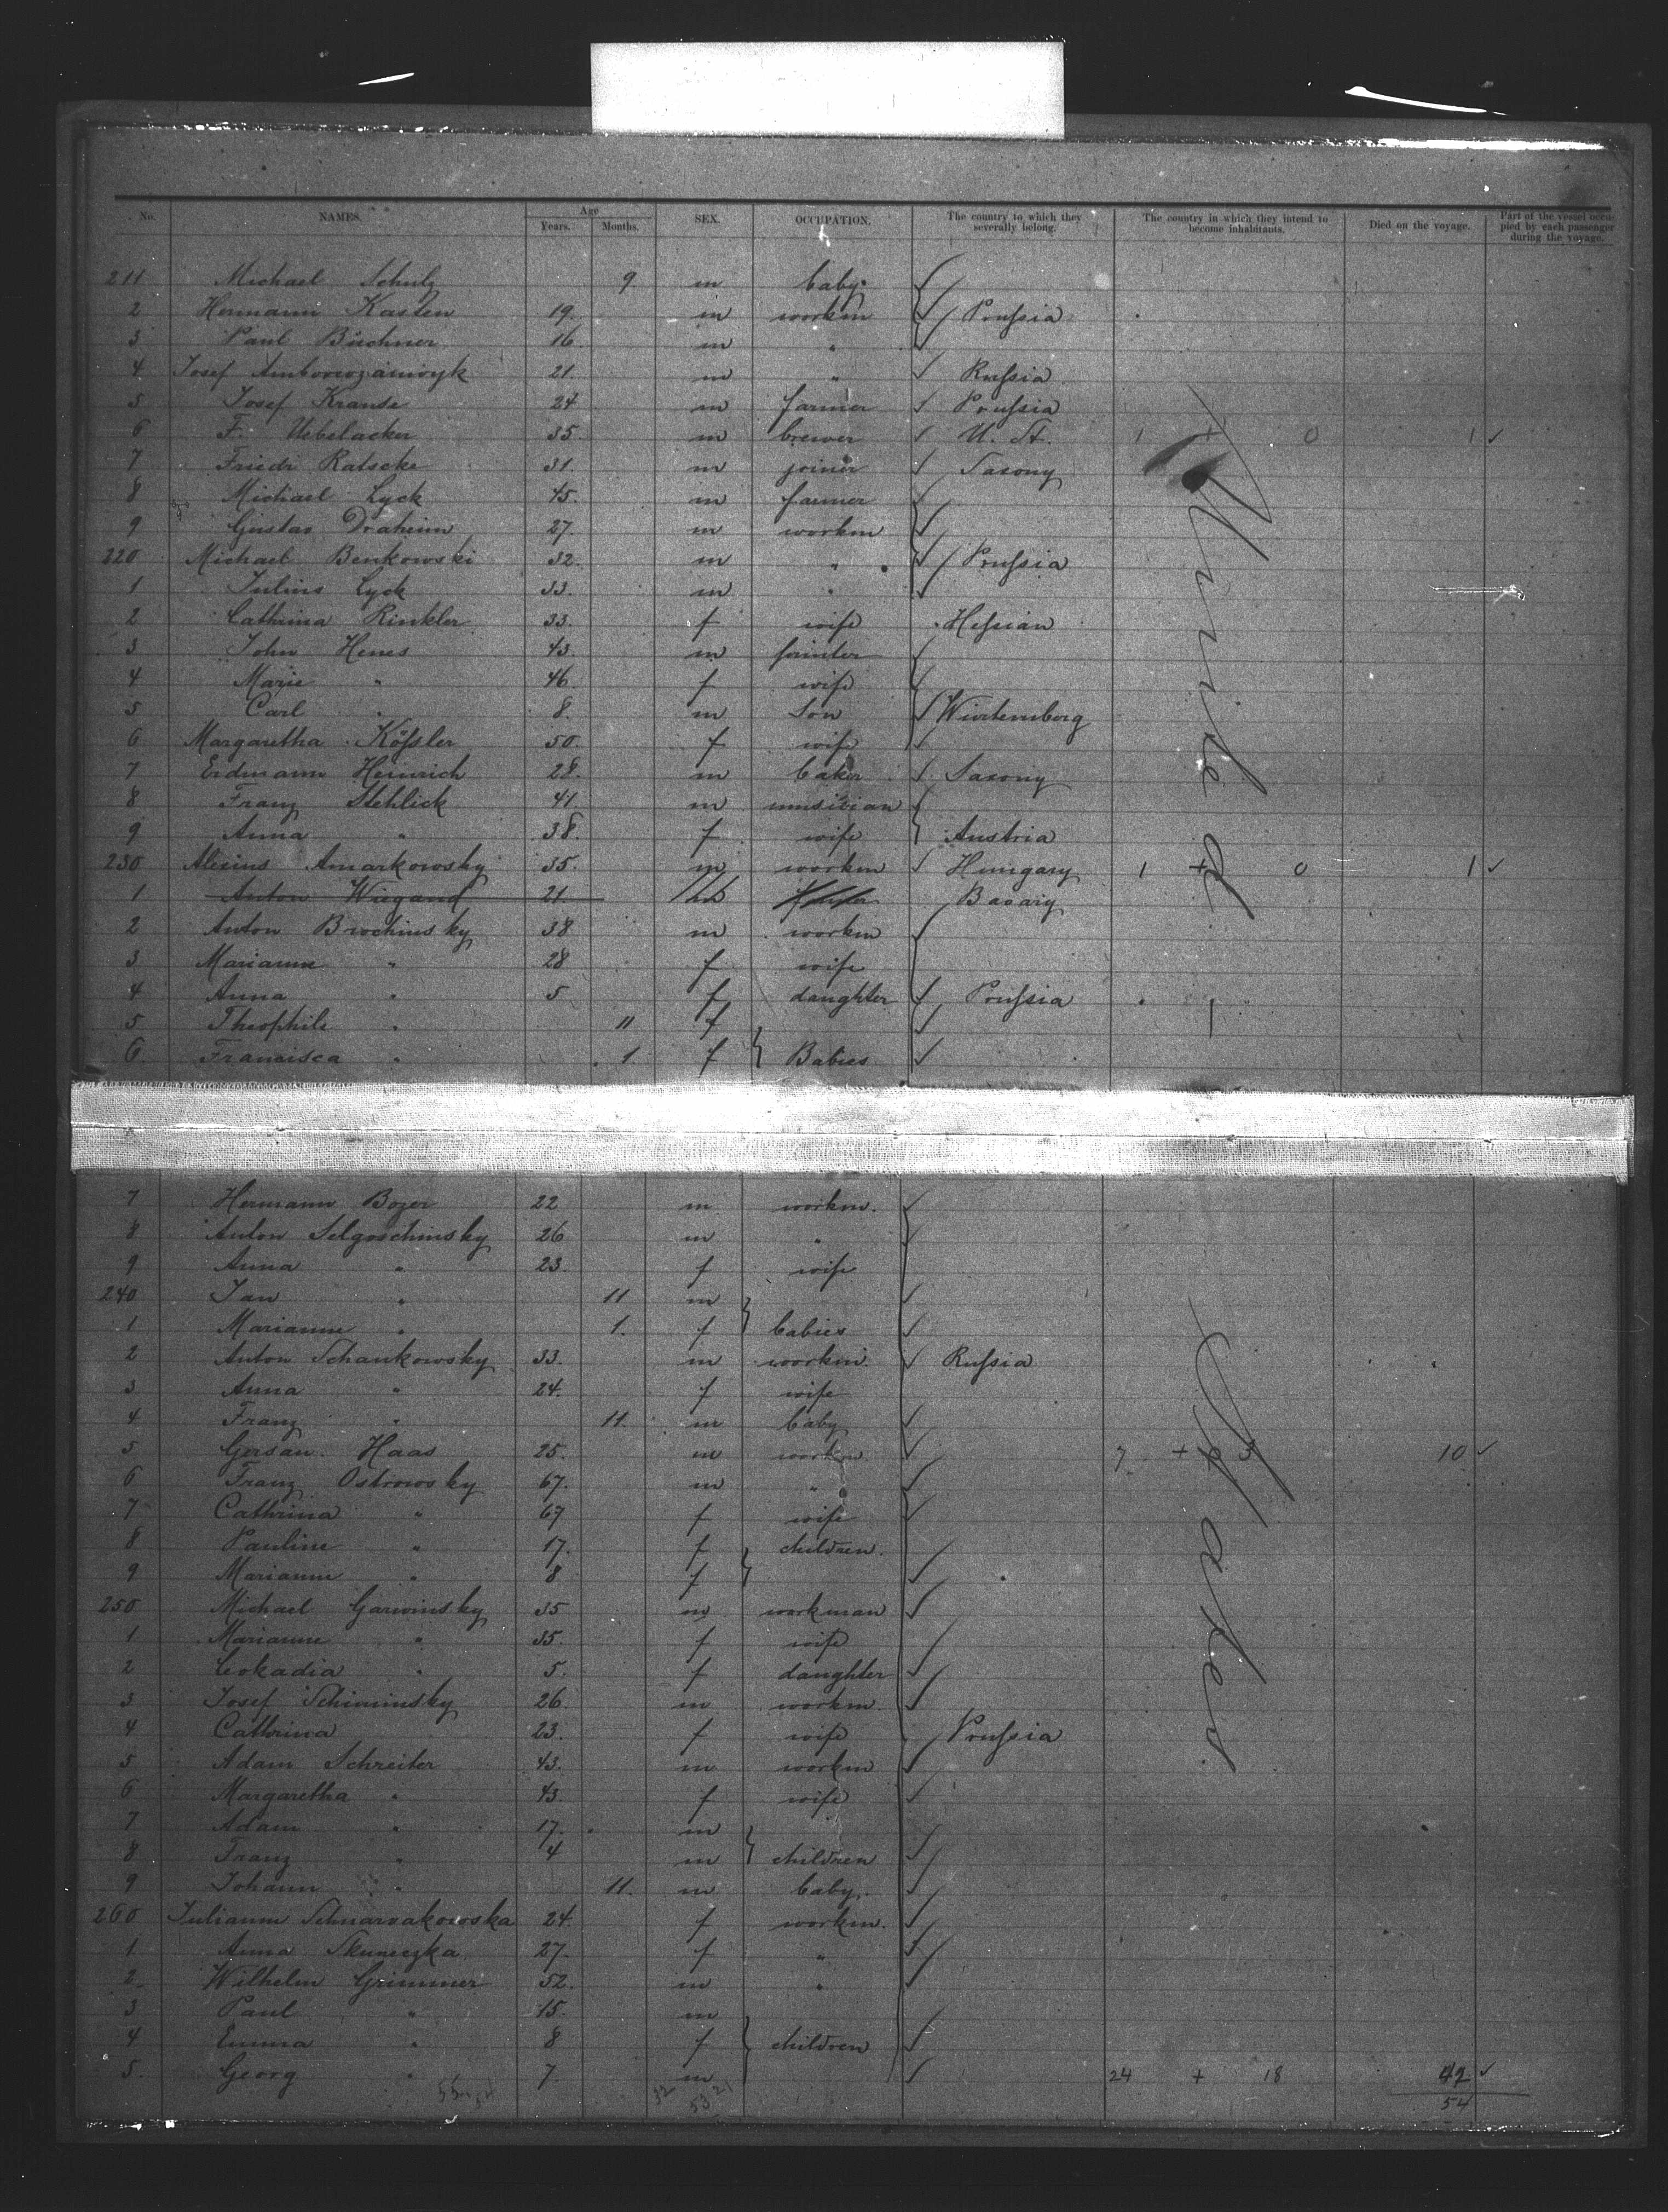 No. NAMES. Age Years. Months. SEX. OCCUPATION. The country to which they severally belong. The country in which they intend to become inhabitants. Died on the voyage. Part of the vessel occupied by each passenger during the voyage.
211 Michael Schulz 9 m baby
2 Hermann Kasten 19. m workm Prussia
3 Paul Büchner 16 m "
4 Josef 21. m " Russia
5 Josef Krause 24 m farmer Prussia
6 F. Uebelacker 35. m brewer U. St. 1 + 0 1 ✓
7 Friedr Ratscke 31. m joiner Saxony
8 Michael Lyck 45. m farmer
9 Gustav Draheim 27. m workm
220 Michael Benkowski 32. m " Prussia
1 Julius Lyck 33. m "
2 Cathrina Rinkler 33. f wife Hessian
3 John Henes 43. m painter
4 Marie " 46. f wife
5 Carl " 8. m Son Würtemberg
6 Margaretha Kößler 50. f wife
7 Erdmann Heinrich 28. m baker Saxony
8 Franz Stehlick 41. m musician
9 Anna " 38. f wife Austria
230 Alexius Amarkowsky 35. m workm Hungary 1 + 0 1 ✓
1 Anton Wiegand 21. Bavary
2 Anton Brochinsky 38 m workm
3 Marianne " 28 f wife
4 Anna " 5 f daughter Prussia
5 Theophile " 11 f
6 Francisca " 1. f Babies
7 Hermann Bozer 22 m workm.
8 Anton Selgoschinsky 26 m "
9 Anna " 23. f wife
240 Jan " 11 m
1 Marianne " 1. f babies
2 Anton Schankowsky 33. m workm. Russia
3 Anna " 24. f wife
4 Franz " 11. m baby
5 Gersan Haas 25. m workm 7 + 3 10 ✓
6 Franz Ostrowsky 67. m "
7 Cathrina " 67 f wife
8 Pauline " 17. f children.
9 Marianne " 8 f
250 Michael Garwinsky 35 m workman
1 Marianne " 35. f wife
2 Leokadia " 5. f daughter
3 Josef 26 m workm.
4 Cathrina 23. f wife Prussia
5 Adam Schreiter 43. m workm
6 Margaretha " 43. f wife
7 Adam " 17. m
8 Franz " 4 m children
9 Johann " 11. m baby.
260 Julianne 24. f workm.
1 Anna Skuneczka 27. f "
2 Wilhelm Grimmer 52. m "
3 Paul " 15. m
4 Emma " 8 f children
5. Georg " 7 m 24 + 18 42 ✓
54
United
States